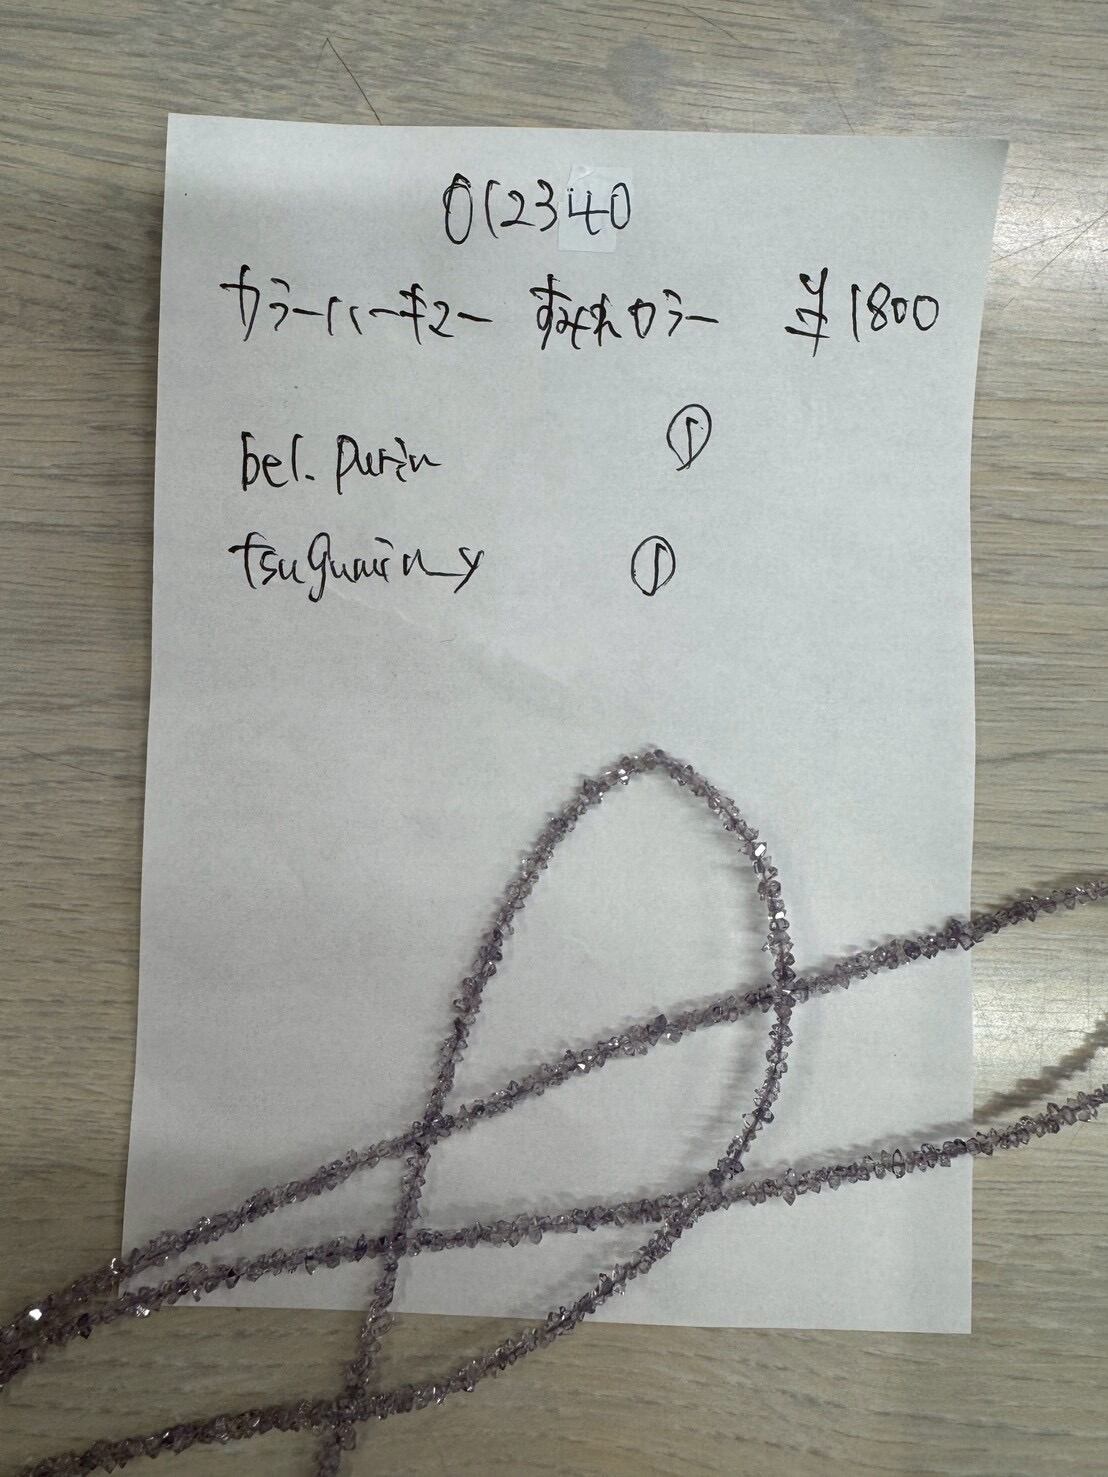 012340
カラーハーキマー すみれカラー ¥1800
bel. purin ①
tsugumin_y ①